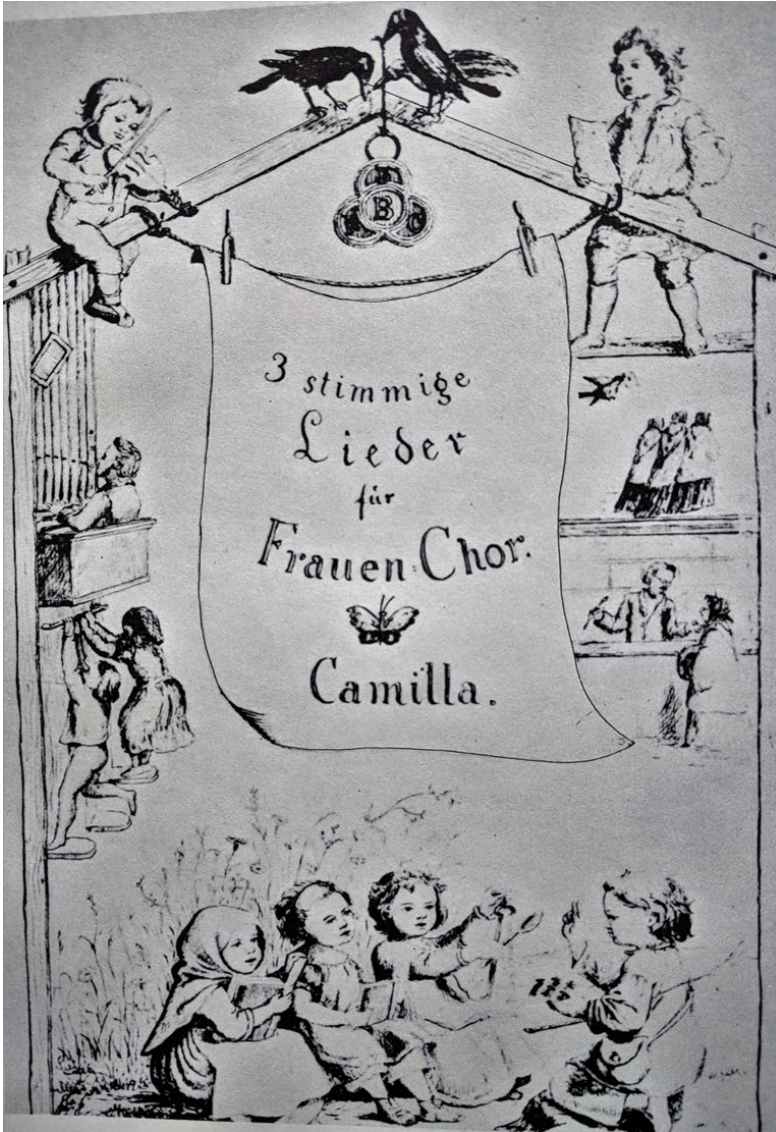 B
3 stimmige
Lieder
für
Frauen Chor.
Camilla.